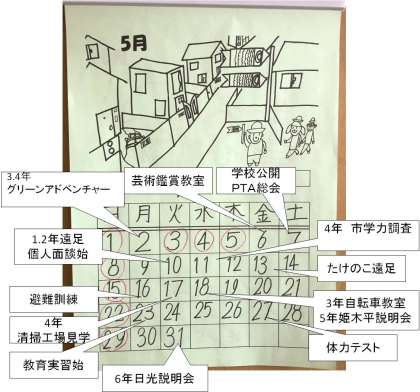 5月
3.4年
グリーンアドベンチャー
芸術鑑賞教室
学校公開
PTA総会
月 火 水 木 金 土
1 2 3 4 5 6 7
1.2年遠足
個人面談始
4年 市学力調査
8 9 10 11 12 13 14
たけのこ遠足
避難訓練
15 16 17 18 19 20 21
3年自転車教室
5年姫木平説明会
4年
清掃工場見学
22 23 24 25 26 27 28
体力テスト
教育実習始
29 30 31
6年日光説明会